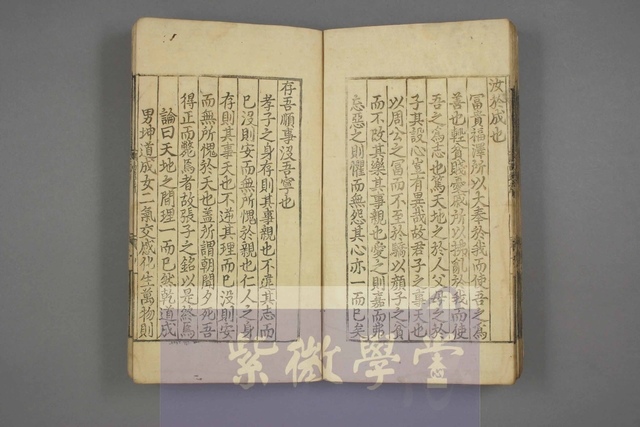 汝於成也
富貴福澤所以大奉於我而使吾之為
善也輕貧賤憂戚所以拂亂於我而使
吾之為志也篤天地之於人父母之於
子其設心豈有異哉故君子之事天也
以周公之富而不至於驕以顏子之貧
而不改其樂其事親也愛之則喜而弗
忘惡之則懼而無怨其心亦一而已矣
存吾順事沒吾寧也
孝子之身存則其事親也不違其志而
已沒則安而無所愧於親也仁人之身
存則其事天也不逆其理而已沒則安
而無所愧於天也蓋所謂朝聞夕死吾
得正而斃焉者故張子之銘以是終焉
論曰天地之間理一而已然乾道成
男坤道成女二氣交感化生萬物則
紫微學堂